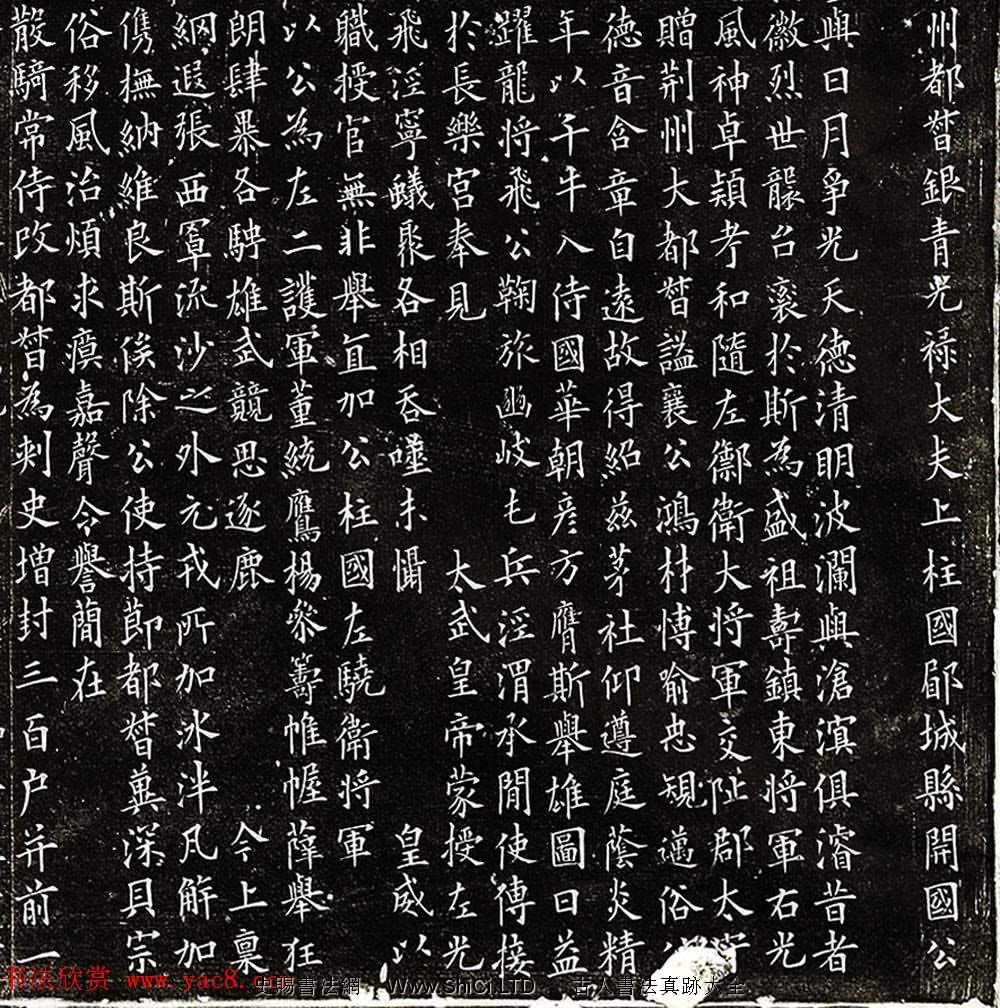 州都督銀青光祿大夫上柱國郿城縣開國公
與日月爭光天德清明波瀾與滄溟俱濬昔者
徽烈世襲台袞於斯為盛祖壽鎮東將軍右光
風神卓穎考和隨左禦衛大將軍交阯郡太守
贈荊州大都督諡襄公鴻材博喻忠規邁俗公
德音含章自遠故得紹茲茅社仰遵庭蔭炎精
年以千牛入侍國華朝彥方膺斯舉雄圖日益
躍龍將飛公鞠旅豳岐乇兵涇渭承閒使傳接
於長樂宮奉見 太武皇帝蒙授左光
飛涇寧蟻聚各相吞噬未懾 皇威以
職授官無非舉直加公柱國左驍衛將軍
以公為左二護軍董統鷹楊參籌帷幄薛舉狂
朗肆暴各騁雄武競思逐鹿 今上稟
網遐張西窮流沙之外元戎所加冰泮凡斛加
俊撫納維良斯俟除公使持節都督冀深貝宗
俗移風治煩求瘼嘉聲令譽簡在
散騎常侍改都督為刺史增封三百户并前一
书法欣赏 www.yac8.com
史賜書法網 www.ShiCi.LTD 古人書法真跡大全